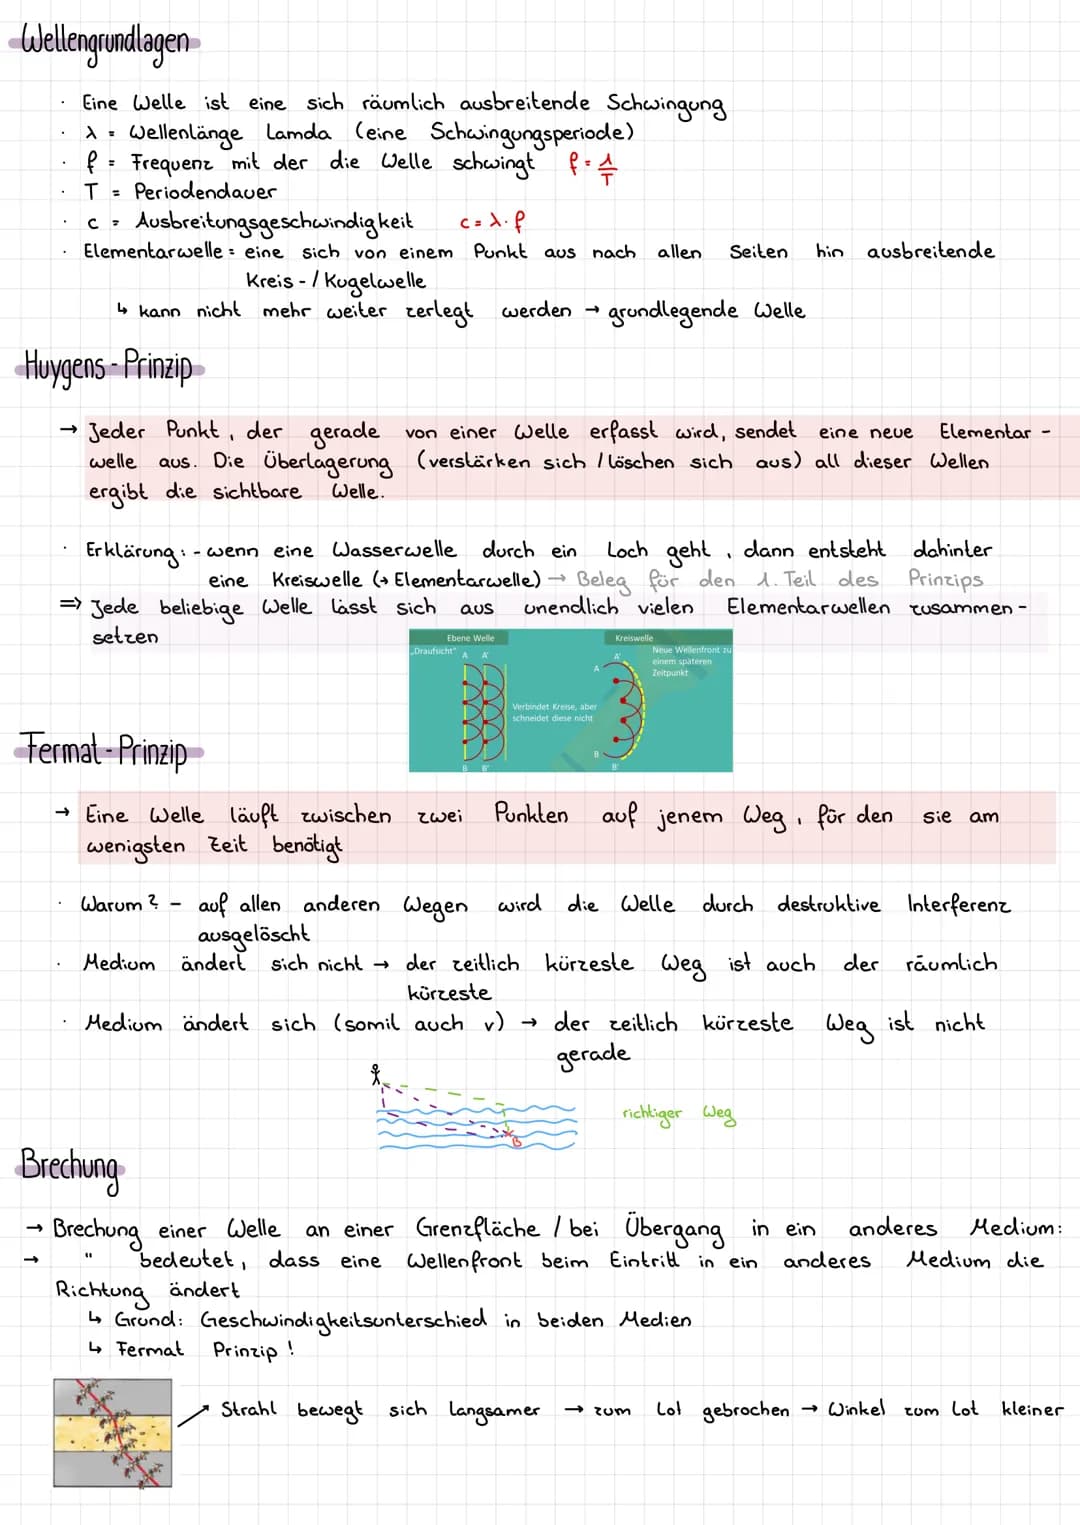 Wellengrundlagen
· Eine Welle ist eine sich räumlich ausbreitende Schwingung
· λ = Wellenlänge Lamda (eine Schwingungsperiode)
· f = Frequenz mit der die Welle schwingt f = 1/T
· T = Periodendauer
· c = Ausbreitungsgeschwindigkeit c = λ · f
· Elementarwelle = eine sich von einem Punkt aus nach allen Seiten hin ausbreitende
Kreis-/Kugelwelle
↳ kann nicht mehr weiter zerlegt werden → grundlegende Welle
Huygens-Prinzip
→ Jeder Punkt, der gerade von einer Welle erfasst wird, sendet eine neue Elementar-
welle aus. Die Überlagerung (verstärken sich / löschen sich aus) all dieser Wellen
ergibt die sichtbare Welle.
· Erklärung: - wenn eine Wasserwelle durch ein Loch geht, dann entsteht dahinter
eine Kreiswelle (→ Elementarwelle) → Beleg für den 1. Teil des Prinzips
⇒ Jede beliebige Welle lässt sich aus unendlich vielen Elementarwellen zusammen-
setzen
Ebene Welle
"Draufsicht"
A A'
Verbindet Kreise, aber
schneidet diese nicht
B B'
Kreiswelle
A'
A
Neue Wellenfront zu
einem späteren
Zeitpunkt
B
B'
Fermat-Prinzip
→ Eine Welle läuft zwischen zwei Punkten auf jenem Weg, für den sie am
wenigsten Zeit benötigt
· Warum? - auf allen anderen Wegen wird die Welle durch destruktive Interferenz
ausgelöscht
· Medium ändert sich nicht → der zeitlich kürzeste Weg ist auch der räumlich
kürzeste
· Medium ändert sich (somit auch v) → der zeitlich kürzeste Weg ist nicht
gerade
richtiger Weg
B
Brechung
→ Brechung einer Welle an einer Grenzfläche / bei Übergang in ein anderes Medium:
→ " bedeutet, dass eine Wellenfront beim Eintritt in ein anderes Medium die
Richtung ändert
↳ Grund: Geschwindigkeitsunterschied in beiden Medien
↳ Fermat Prinzip!
Strahl bewegt sich langsamer → zum Lot gebrochen → Winkel zum Lot kleiner